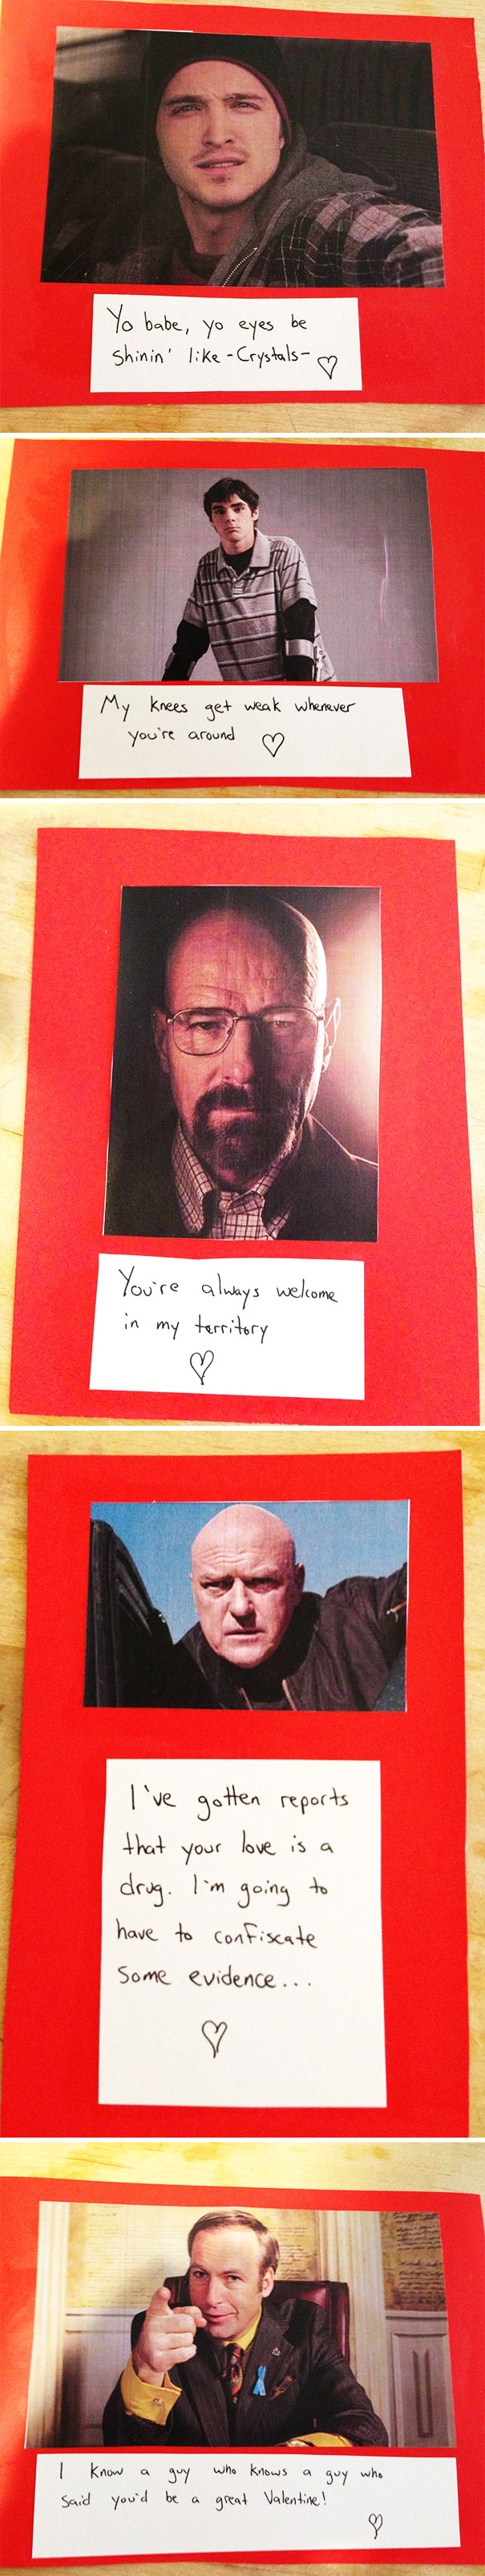 Yo babe, yo eyes be
Shinin' like -Crystals- ♡
My knees get weak whenever
you're around ♡
You're always welcome
in my territory
♡
I've gotten reports
that your love is a
drug. I'm going to
have to confiscate
Some evidence...
♡
I know a guy who knows a guy who
said you'd be a great Valentine!
♡